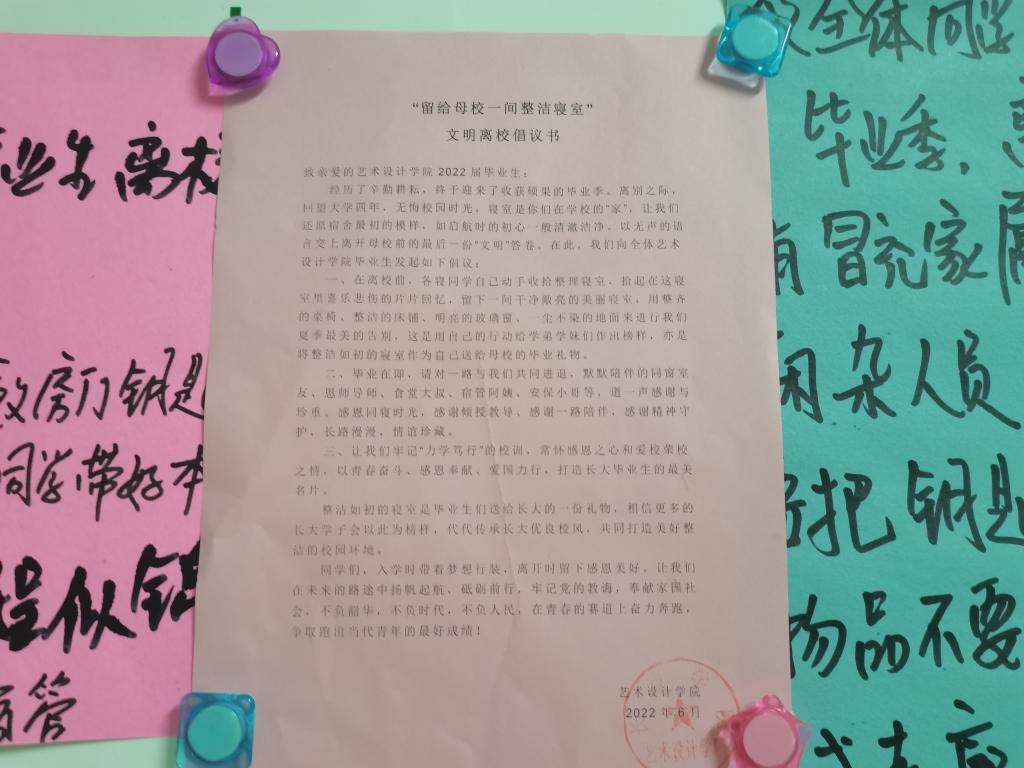 “留给母校一间整洁寝室”
文明离校倡议书
致亲爱的艺术设计学院 2022 届毕业生：
经历了辛勤耕耘，终于迎来了收获硕果的毕业季。离别之际，
回望大学四年，无悔校园时光，寝室是你们在学校的“家”，让我们
还原宿舍最初的模样，如启航时的初心一般清澈洁净，以无声的语
言交上离开母校前的最后一份“文明”答卷。在此，我们向全体艺术
设计学院毕业生发起如下倡议：
一、在离校前，各寝同学自己动手收拾整理寝室，拾起在这寝
室里喜乐悲伤的片片回忆，留下一间干净敞亮的美丽寝室，用整齐
的桌椅、整洁的床铺、明亮的玻璃窗、一尘不染的地面来进行我们
夏季最美的告别，这是用自己的行动给学弟学妹们作出榜样，亦是
将整洁如初的寝室作为自己送给母校的毕业礼物。
二、毕业在即，请对一路与我们共同进退，默默陪伴的同窗室
友、恩师导师、食堂大叔、宿管阿姨、安保小哥等，道一声感谢与
珍重。感恩同寝时光，感谢倾授教导、感谢一路陪伴，感谢精神守
护，长路漫漫，情谊珍藏。
三、让我们牢记“力学笃行”的校训，常怀感恩之心和爱校荣校
之情，以青春奋斗、感恩奉献、爱国力行，打造长大毕业生的最美
名片。
整洁如初的寝室是毕业生们送给长大的一份礼物，相信更多的
长大学子会以此为榜样，代代传承长大优良校风，共同打造美好整
洁的校园环境。
同学们，入学时带着梦想行装，离开时留下感恩美好。让我们
在未来的路途中扬帆起航，砥砺前行，牢记党的教诲，奉献家国社
会，不负韶华，不负时代，不负人民，在青春的赛道上奋力奔跑，
争取跑出当代青年的最好成绩！
艺术设计学院
2022 年 6 月
艺术设计学
业生离校
房门钥匙
同学带好本
似
管
全体同学
毕业季，
冒充家属
杂人员
把钥匙
物品不要